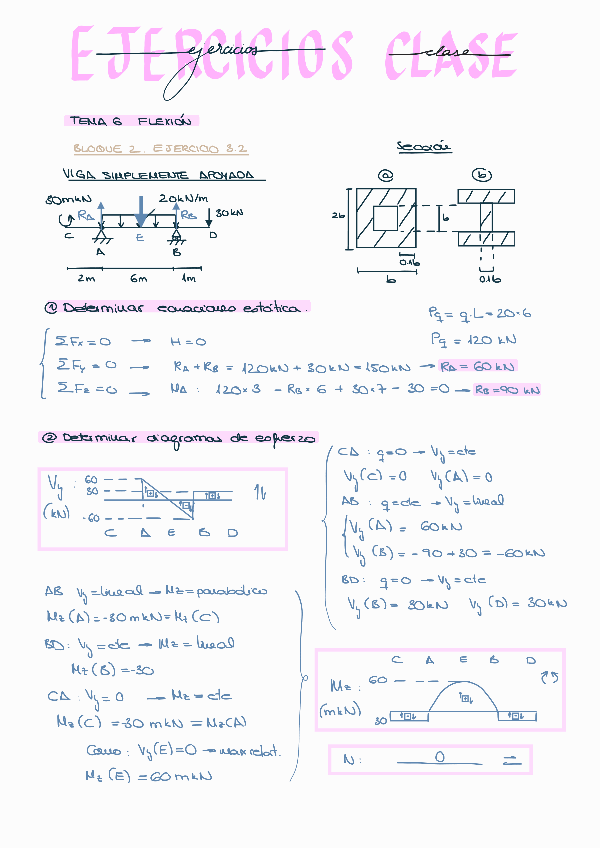 EJERCICIOS CLASE
ejercicios clase
TEMA 6 FLEXIÓN
BLOQUE 2. EJERCICIO 3.2
Sección
VIGA SIMPLEMENTE APOYADA
a b
30mkN 20kN/m
RA RB 30kN
C E D
A B
2m 6m 1m
2b b
0.1b 0.1b
b
① Determinar ecuaciones estática.
Pq = q·L = 20·6
Pq = 120 kN
ΣFx = 0 → H = 0
ΣFy = 0 → RA + RB = 120kN + 30kN = 150kN → RA = 60kN
ΣFz = 0 → MA : 120×3 - RB×6 + 30×7 - 30 = 0 → RB = 90 kN
② Determinar diagramas de esfuerzo
Vy :
(kN)
60
30
-60
C A E B D
CA : q=0 → Vy = cte
Vy(C) = 0 Vy(A) = 0
AB : q = cte → Vy = lineal
Vy(A) = 60kN
Vy(B) = -90 + 30 = -60kN
BD : q=0 → Vy = cte
Vy(B) = 30kN Vy(D) = 30kN
AB Vy = lineal → Mz = parabólico
Mz(A) = -30 mkN = Mz(C)
BD : Vy = cte → Mz = lineal
Mz(B) = -30
CA : Vy = 0 → Mz = cte
Mz(C) = -30 mkN = Mz(A)
Como : Vy(E) = 0 → max relat.
Mz(E) = 60 mkN
C A E B D
Mz :
(mkN)
60
30
N : 0